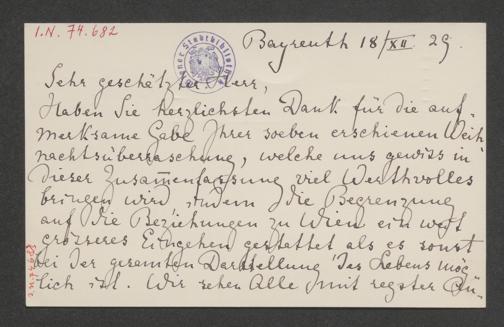 I.N. 74.682
Bayreuth 18/XII 29.
Sehr geschätzter Herr,
Haben Sie herzlichsten Dank für die auf-
merksame Gabe Ihrer soeben erschienen Weih-
nachtsüberraschung, welche uns gewiss in
dieser Zusammenfassung viel Werthvolles
bringen wird indem die Begrenzung
auf die Beziehungen zu Wien ein weit
grösseres Eingehen gestattet als es sonst
bei der gesamten Darstellung des Lebens mög-
lich ist. Wir sehen Alle mit regster